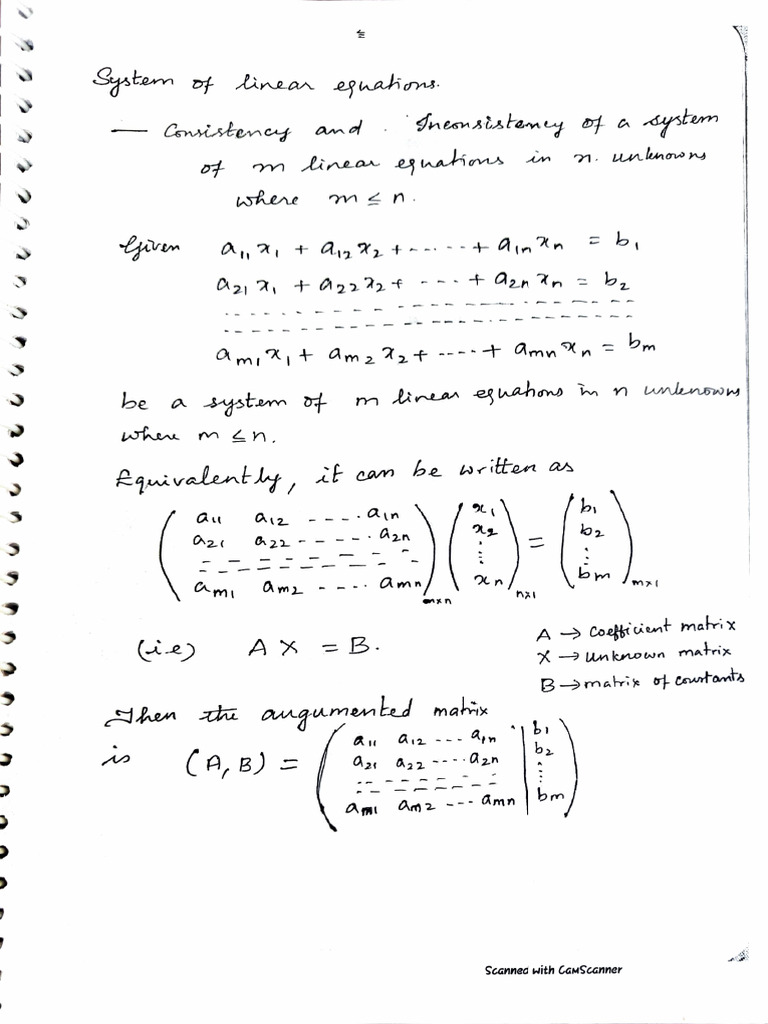 System of linear equations.
— Consistency and Inconsistency of a system
of m linear equations in n unknowns
where m ≤ n.
Given a11 x1 + a12 x2 + ..... + a1n xn = b1
a21 x1 + a22 x2 + ... + a2n xn = b2
- - - - - - - - - - - - - - - -
- - - - - - - - - - - - - - - -
am1 x1 + am2 x2 + ---- + amn xn = bm
be a system of m linear equations in n unknowns
where m ≤ n.
Equivalently, it can be written as
( a11 a12 ---- a1n ) ( x1 ) = ( b1 )
a21 a22 ------ a2n x2 b2
- - - - - - - - ⋮ ⋮
am1 am2 ---- amn m×n xn n×1 bm m×1
(i.e) A X = B.
A → Coefficient matrix
X → unknown matrix
B → matrix of constants
Then the augumented matrix
is (A, B) = ( a11 a12 --- a1n | b1 )
a21 a22 ---- a2n | b2
- - - - - - - | ⋮
am1 am2 --- amn | bm
Scanned with CamScanner